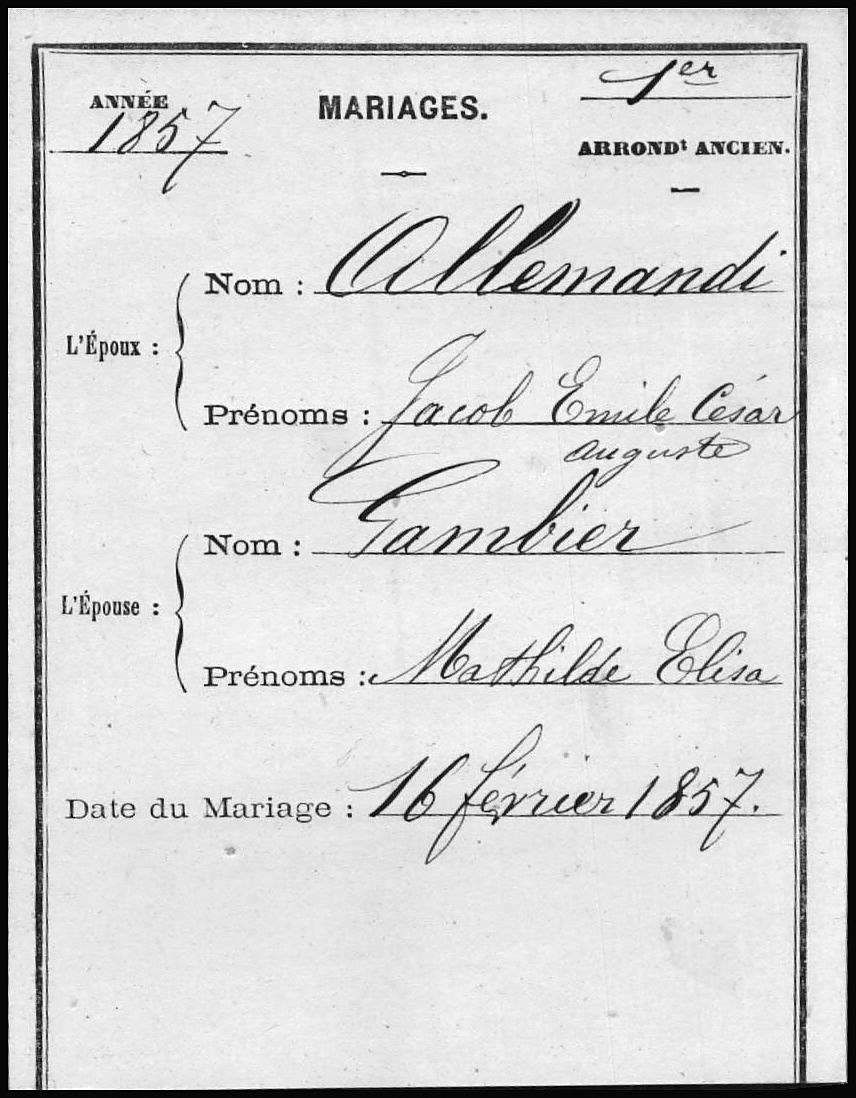 ANNÉE
1857
MARIAGES.
1er
ARRONDt ANCIEN.
L'Époux :
Nom : Allemandi
Prénoms : Jacob Emile César
auguste
L'Épouse :
Nom : Gambier
Prénoms : Mathilde Elisa
Date du Mariage : 16 février 1857.